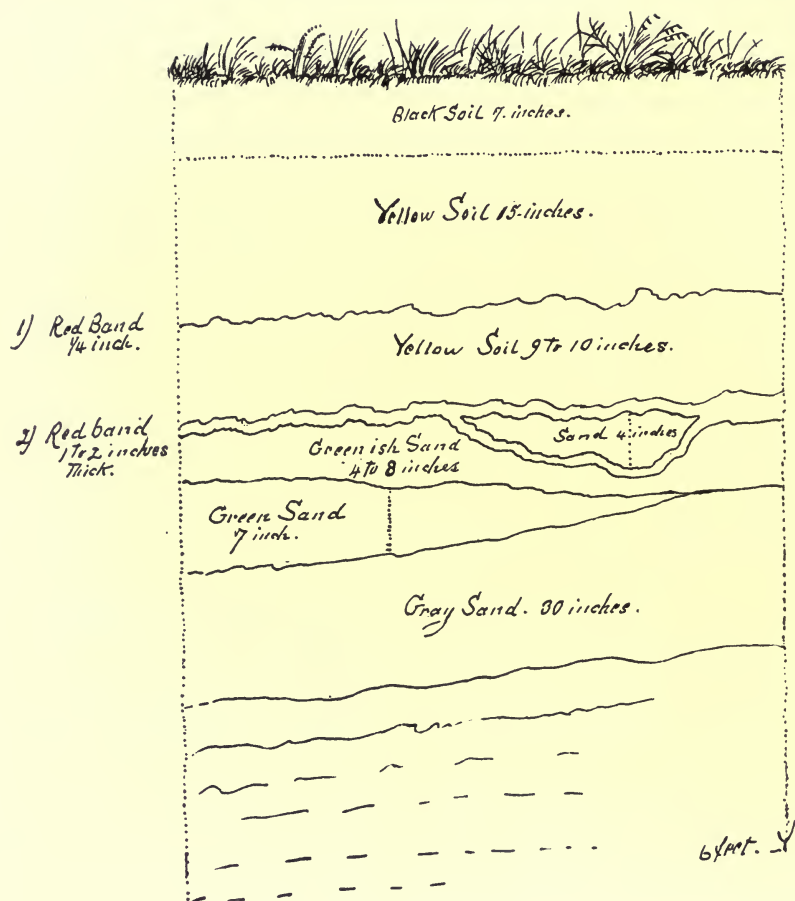 Black Soil 7. inches.
Yellow Soil 15-inches.
1) Red Band
1/4 inch.
Yellow Soil 9 to 10 inches.
2) Red band
1 to 2 inches
Thick.
Sand 4 inches
Greenish Sand
4 to 8 inches
Green Sand
7 inch.
Gray Sand. 30 inches.
6 feet.